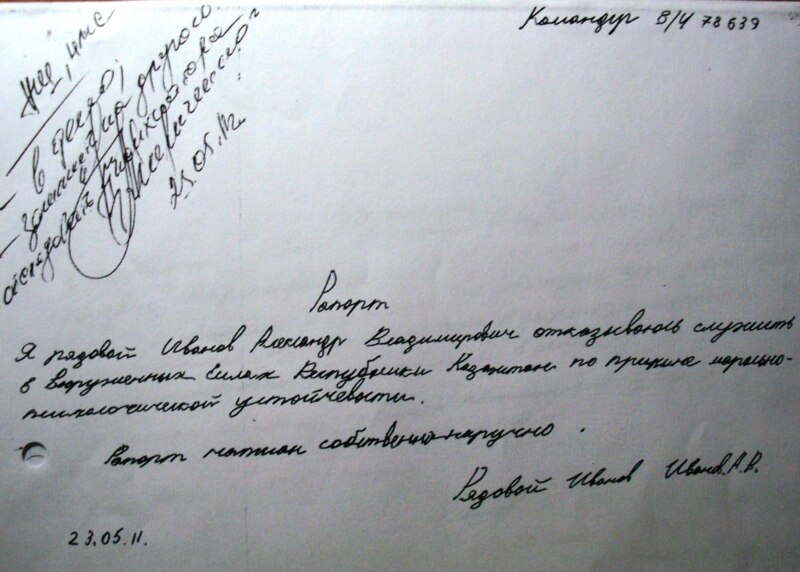 Командиру В/Ч 78639
в дело,
на другого
25.05.11г.
Рапорт
Я рядовой Иванов Александр Владимирович отказываюсь служить
в Вооруженных Силах Республики Казахстан по причине морально-
психологической устойчевости.
Рапорт написан собственно-наручно.
Рядовой Иванов Иванов.А.В.
23.05.11.